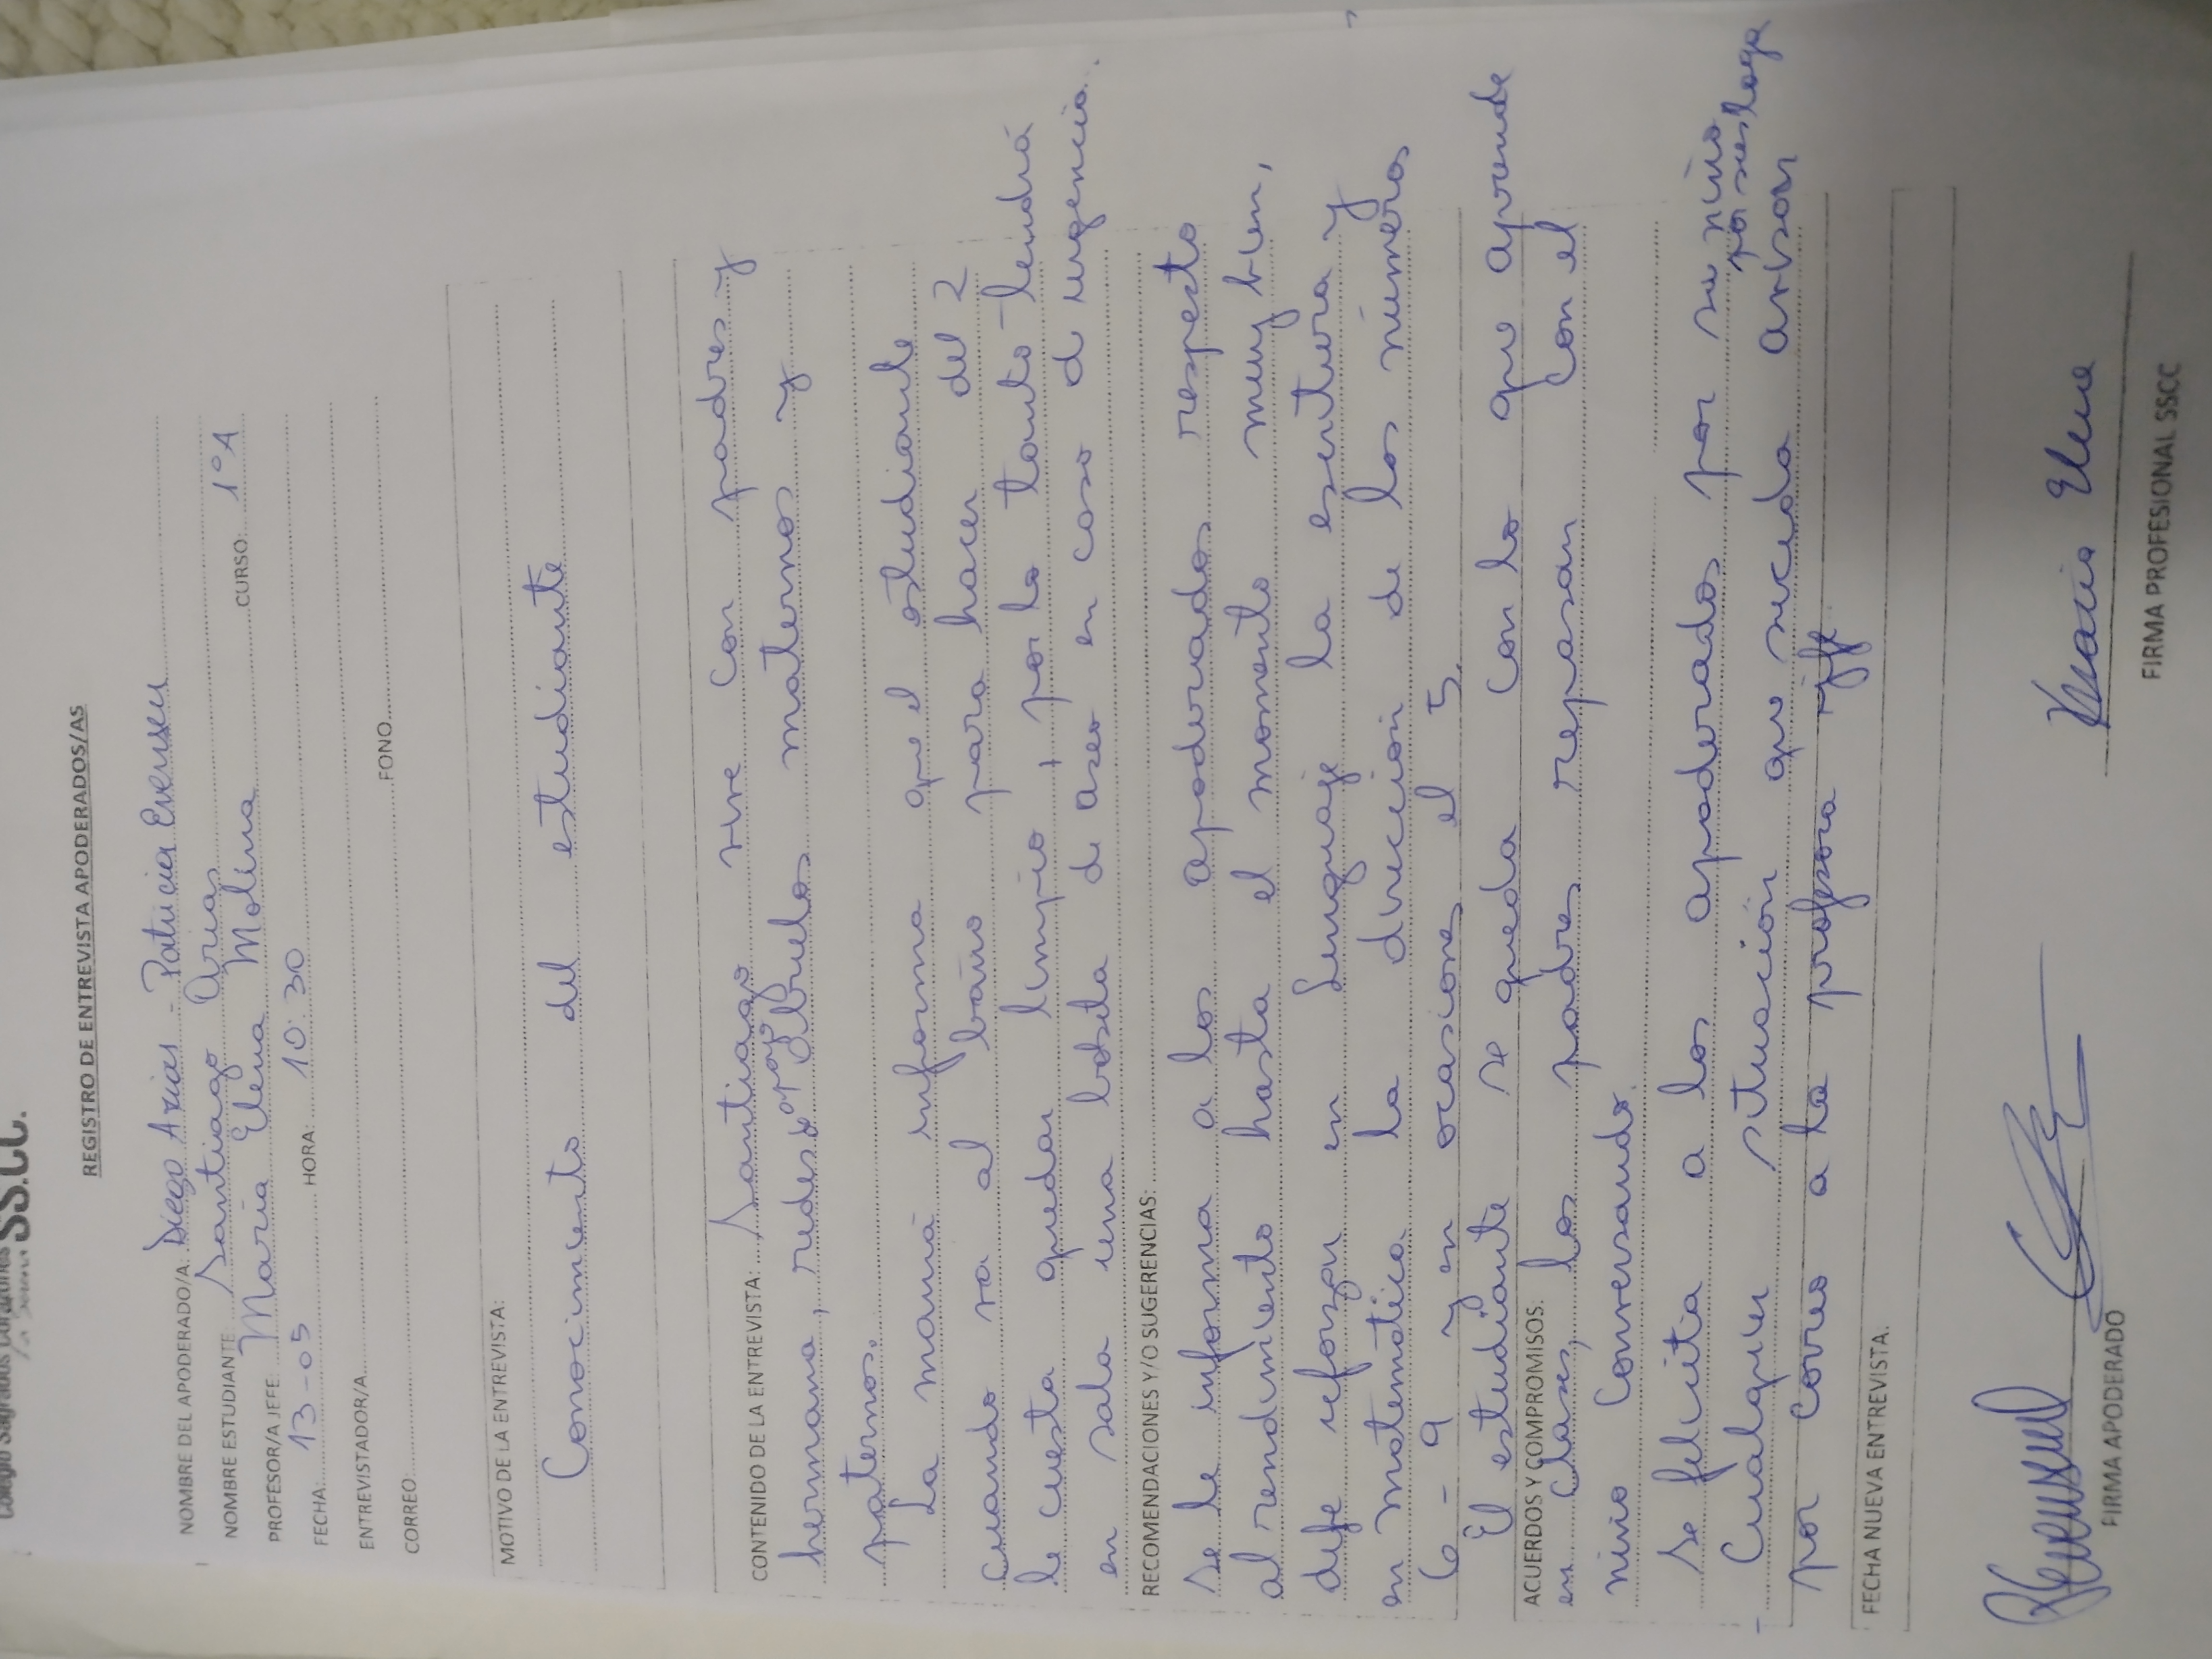 Colegio Sagrados Corazones
SS.CC.
REGISTRO DE ENTREVISTA APODERADOS/AS
NOMBRE DEL APODERADO/A: Diego Arias - Patricia
NOMBRE ESTUDIANTE Santiago Arias CURSO: 1°A
PROFESOR/A JEFE Maria Elena Molina
FECHA: 13-05 HORA: 10:30
ENTREVISTADOR/A
CORREO: FONO
MOTIVO DE LA ENTREVISTA:
Conocimiento del estudiante
CONTENIDO DE LA ENTREVISTA: Santiago vive con padres y
hermana, redes apoyo abuelos maternos y
paternos.
La mamá informa que el estudiante
cuando va al baño para hacer del 2
le cuesta quedar limpio, por lo tanto tendrá
en sala una bolsita de aseo en caso d urgencia.
RECOMENDACIONES Y/O SUGERENCIAS:
Se le informa a los apoderados respecto
al rendimiento hasta el momento muy bien,
debe reforzar en Lenguaje la escritura y
en matemática la dirección de los números
6 - 9 y en ocasiones el 5.
El estudiante se queda con lo que aprende
ACUERDOS Y COMPROMISOS:
en clases, los padres repasan con el
niño conversando.
Se felicita a los apoderados por su niño
Cualquier situación que suceda avisar
por correo a la profesora jefe
FECHA NUEVA ENTREVISTA.
FIRMA APODERADO
Maria Elena
FIRMA PROFESIONAL SSCC